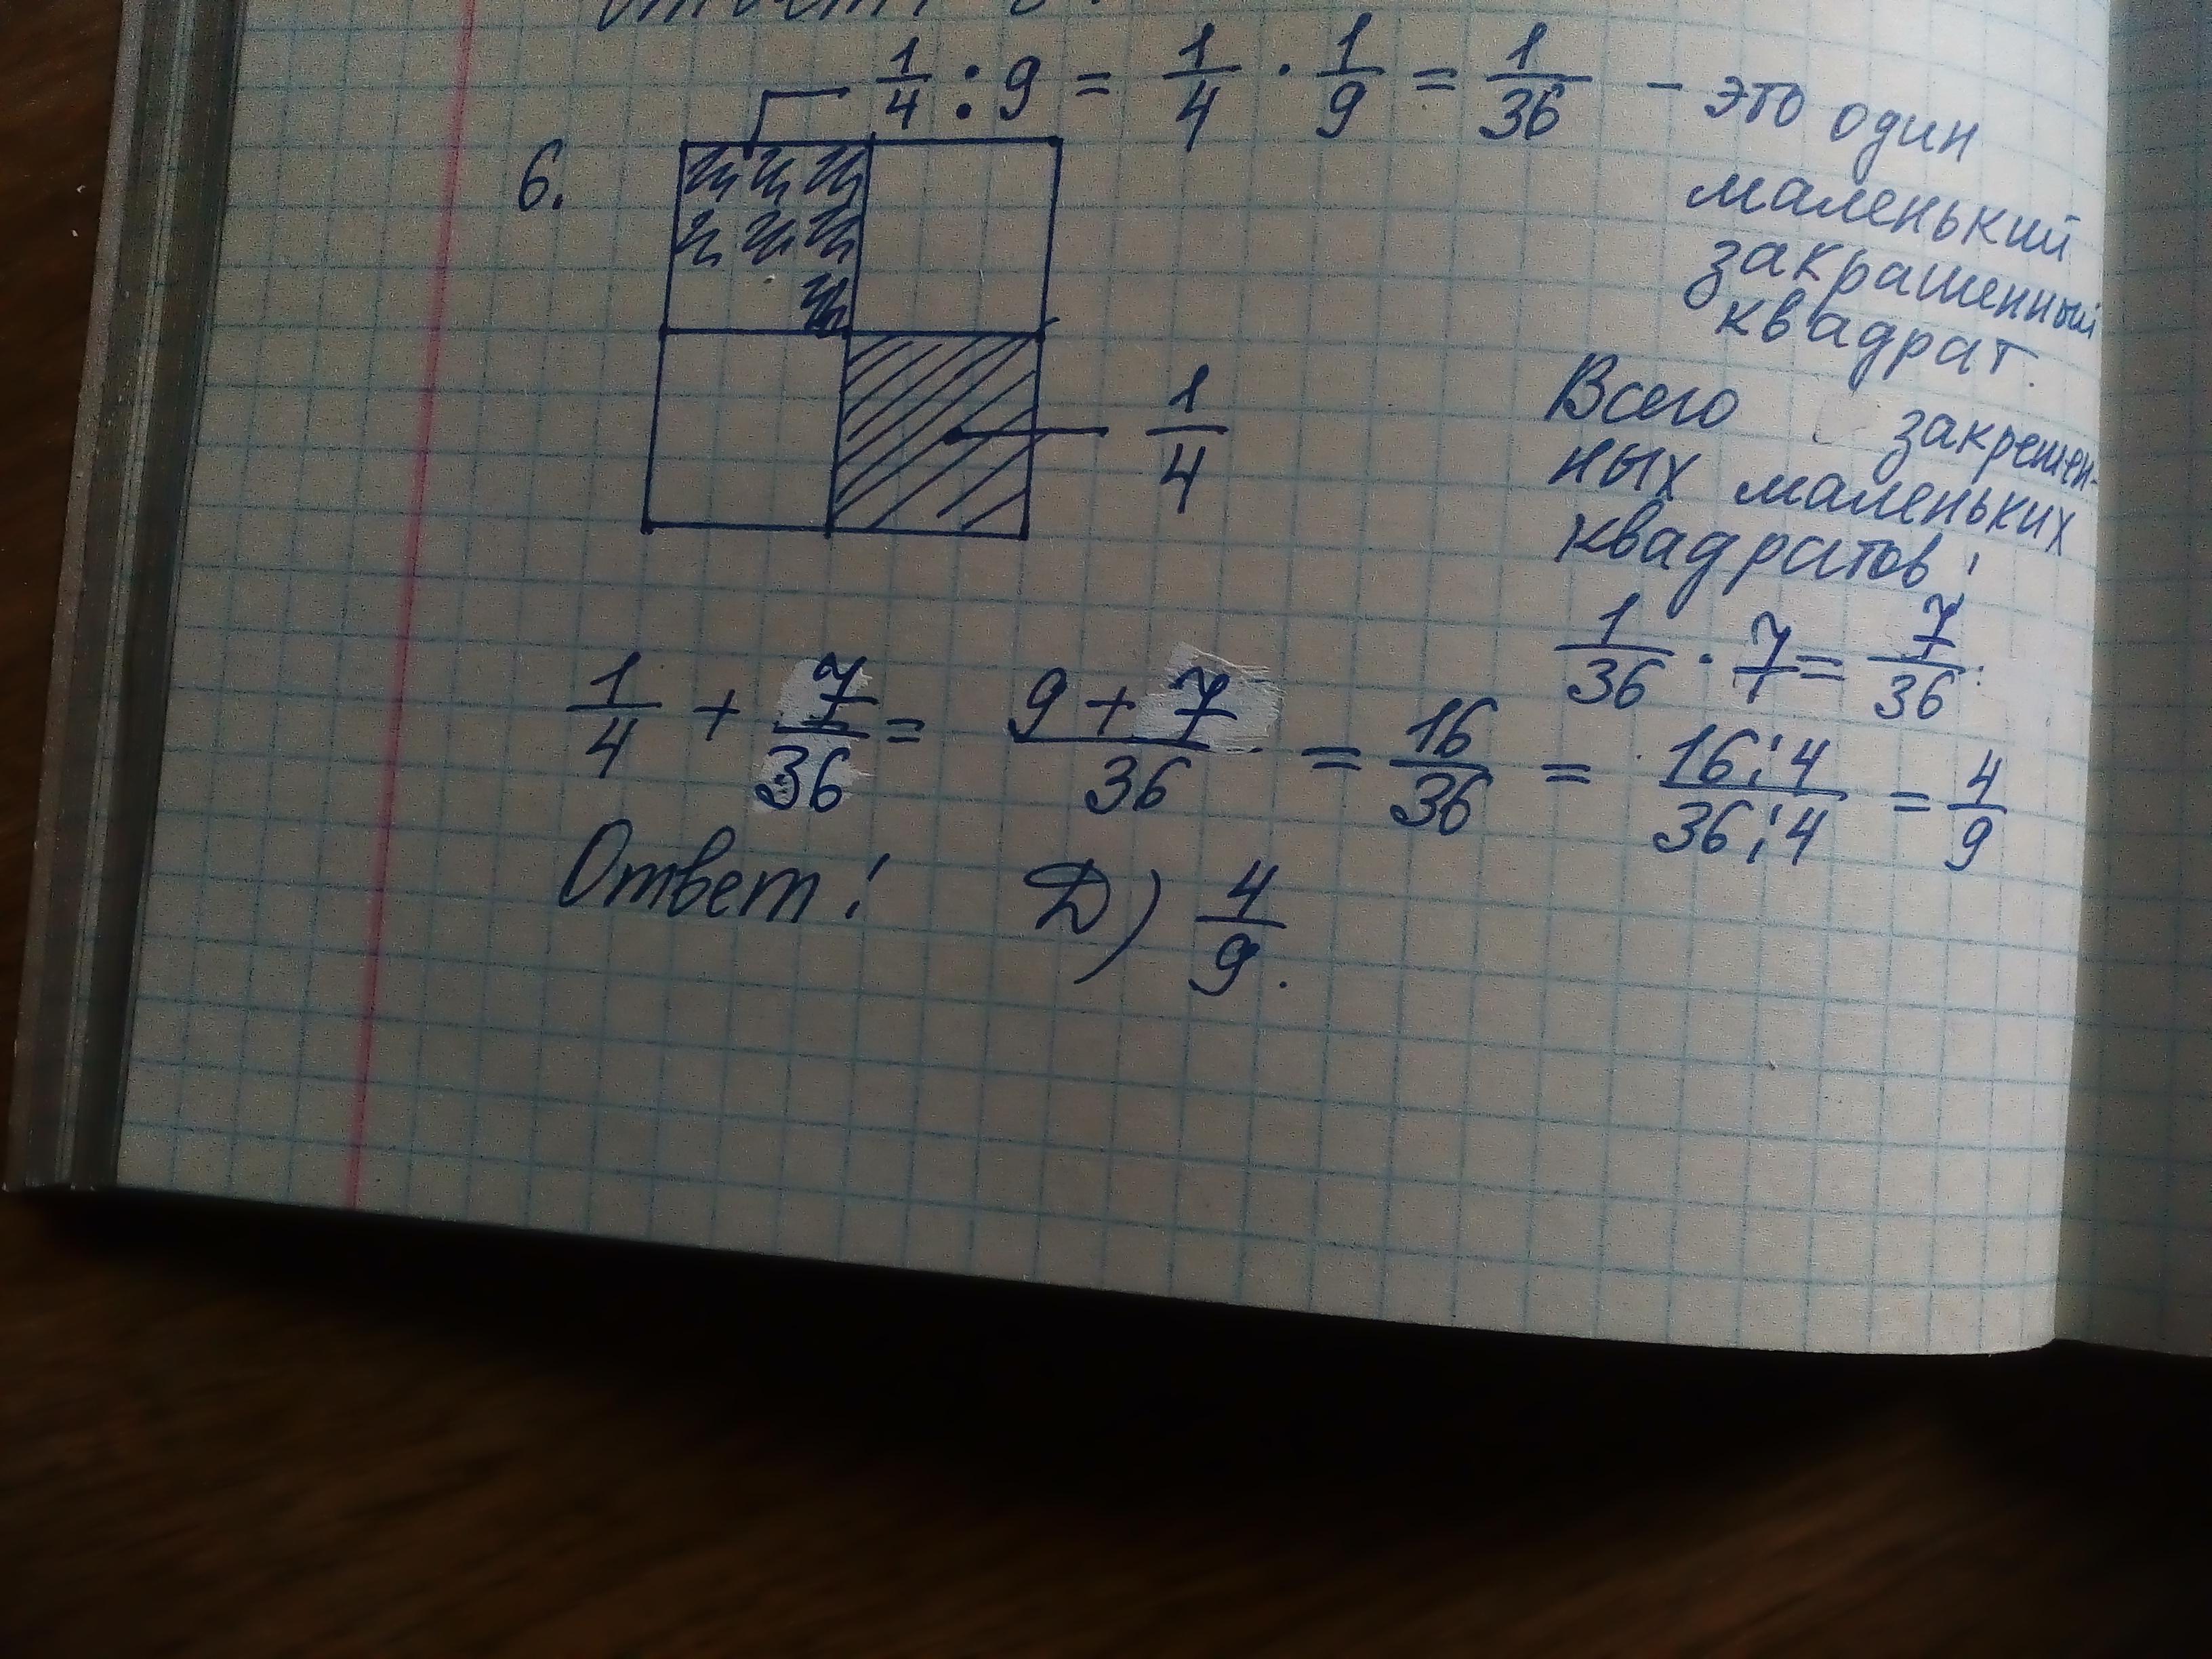 1/4 : 9 = 1/4 · 1/9 = 1/36 - это один
маленький
закрашенный
квадрат.
6.
1/4
Всего закрешен-
ных маленьких
квадратов:
1/36 · 7/1 = 7/36.
1/4 + 7/36 = (9 + 7)/36 = 16/36 = 16:4/36:4 = 4/9
Ответ: D) 4/9.